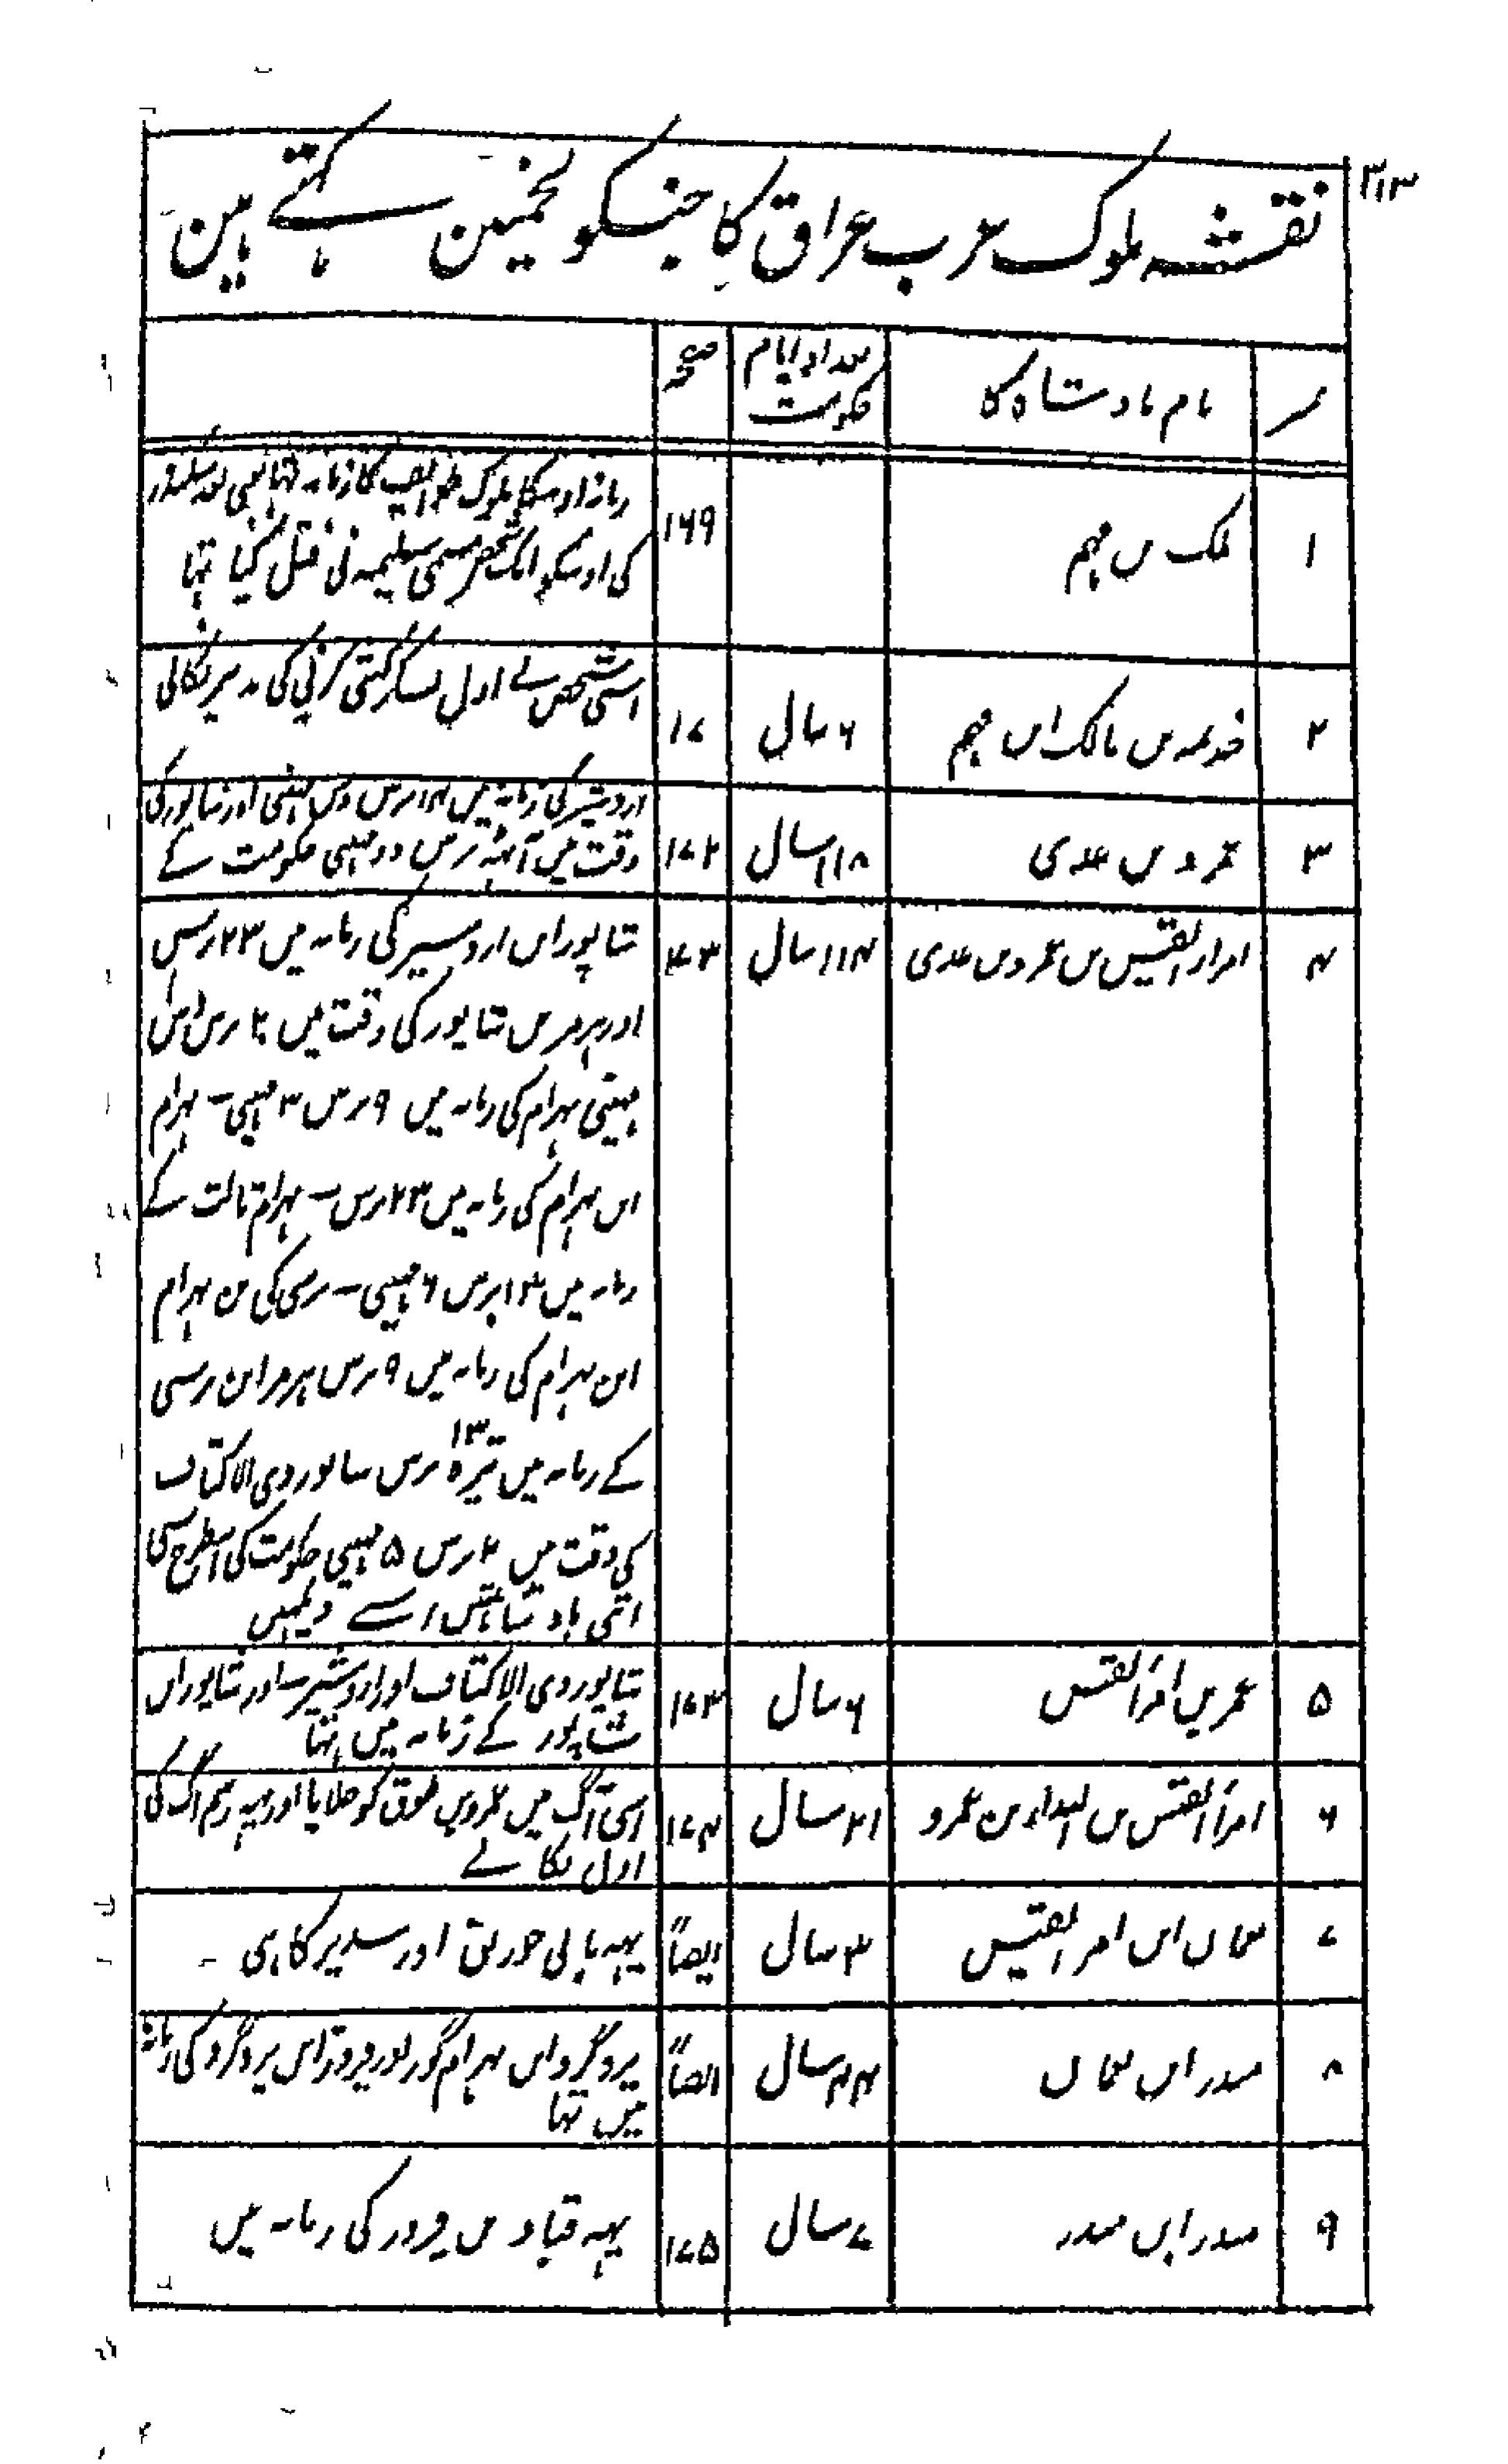 ۳۱۳
نقشہ ملوک عرب عراق کا جنسکو لخمیین کہتے ہین
نمبر
نام بادشاہ کا
تعداد ایام
حکومت
صفحہ
۱
مالک بن فہم
۱۶۹
زمانہ اوسکا ملوک طوایف کا زمانہ تہا
کی اوسکو ایک شخص مسمی سلیمہ نی قتل کیا تہا
۲
خذیمہ بن مالک ابن فہم
۶ سال
۱۷
اسی شخص نے اول لشکر کشی کرنی کی تدبیر نکالی
۳
عمرو بن عدی
۱۱۸ سال
۱۷۲
اردشیر کی زمانہ میں ۱۴ برس دس مہینی اور شاپور کی
وقت میں آٹہہ برس دو مہینی حکومت کے
۴
امراؤ القیس بن عمرو بن عدی
۱۱۴ سال
۷۳
شاپور ابن اردشیر کی زمانہ میں ۲۳ برس
اور ہرمز بن شاپور کی وقت میں ۲ برس
مہینی بہرام کی زمانہ میں ۹ برس ۳ مہینی - بہرام
ابن بہرام کی زمانہ میں ۲۳ برس - بہرام ثالث کے
زمانہ میں ۱۳ برس ۶ مہینی - نرسی کی بن بہرام
ابن بہرام کی زمانہ میں ۹ برس ہرمز ابن نرسی
کے زمانہ میں تیرہ ۱۳ برس سابور ذی الاکتاف
کی وقت میں ۲ برس ۵ مہینی حکومت کی اسطرح سی
اتنی بادشاہتیں اسنے دیکہیں
۵
عمر بن امرؤ القیس
۶ سال
۱۷۳
شاپور ذی الاکتاف اور اردشیر اور شاپور ابن
شاپور کے زمانہ میں تہا
۶
امرؤ القیس بن البداء بن عمرو
۲۱ سال
۱۷۴
اسی آگ میں عمرو بن طوق کو جلایا اور یہہ رسم آگ کی
اول نکالے
۷
نعمان ابن امر القیس
۳ سال
ایضاً
یہہ بانی خورنق اور سدیر کا ہی -
۸
منذر ابن نعمان
۴۴ سال
ایضاً
یزدگرد ابن بہرام گور اور فیروز ابن یزدگرد کی زمانہ
میں تہا
۹
منذر ابن منذر
۷ سال
۱۷۵
یہہ قباد بن فیروز کی زمانہ میں